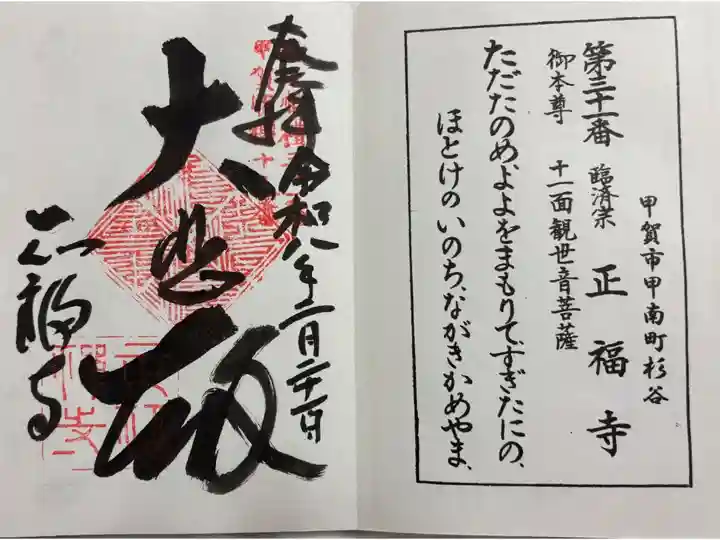 甲賀市甲南町杉谷
第三十一番 臨済宗 正福寺
御本尊 十一面観世音菩薩
ただたのめ、よよをまもりて、すぎたにの、
ほとけのいのち、ながきかめやま、
奉拝 令和八年二月二十一日
大悲殿
正福寺